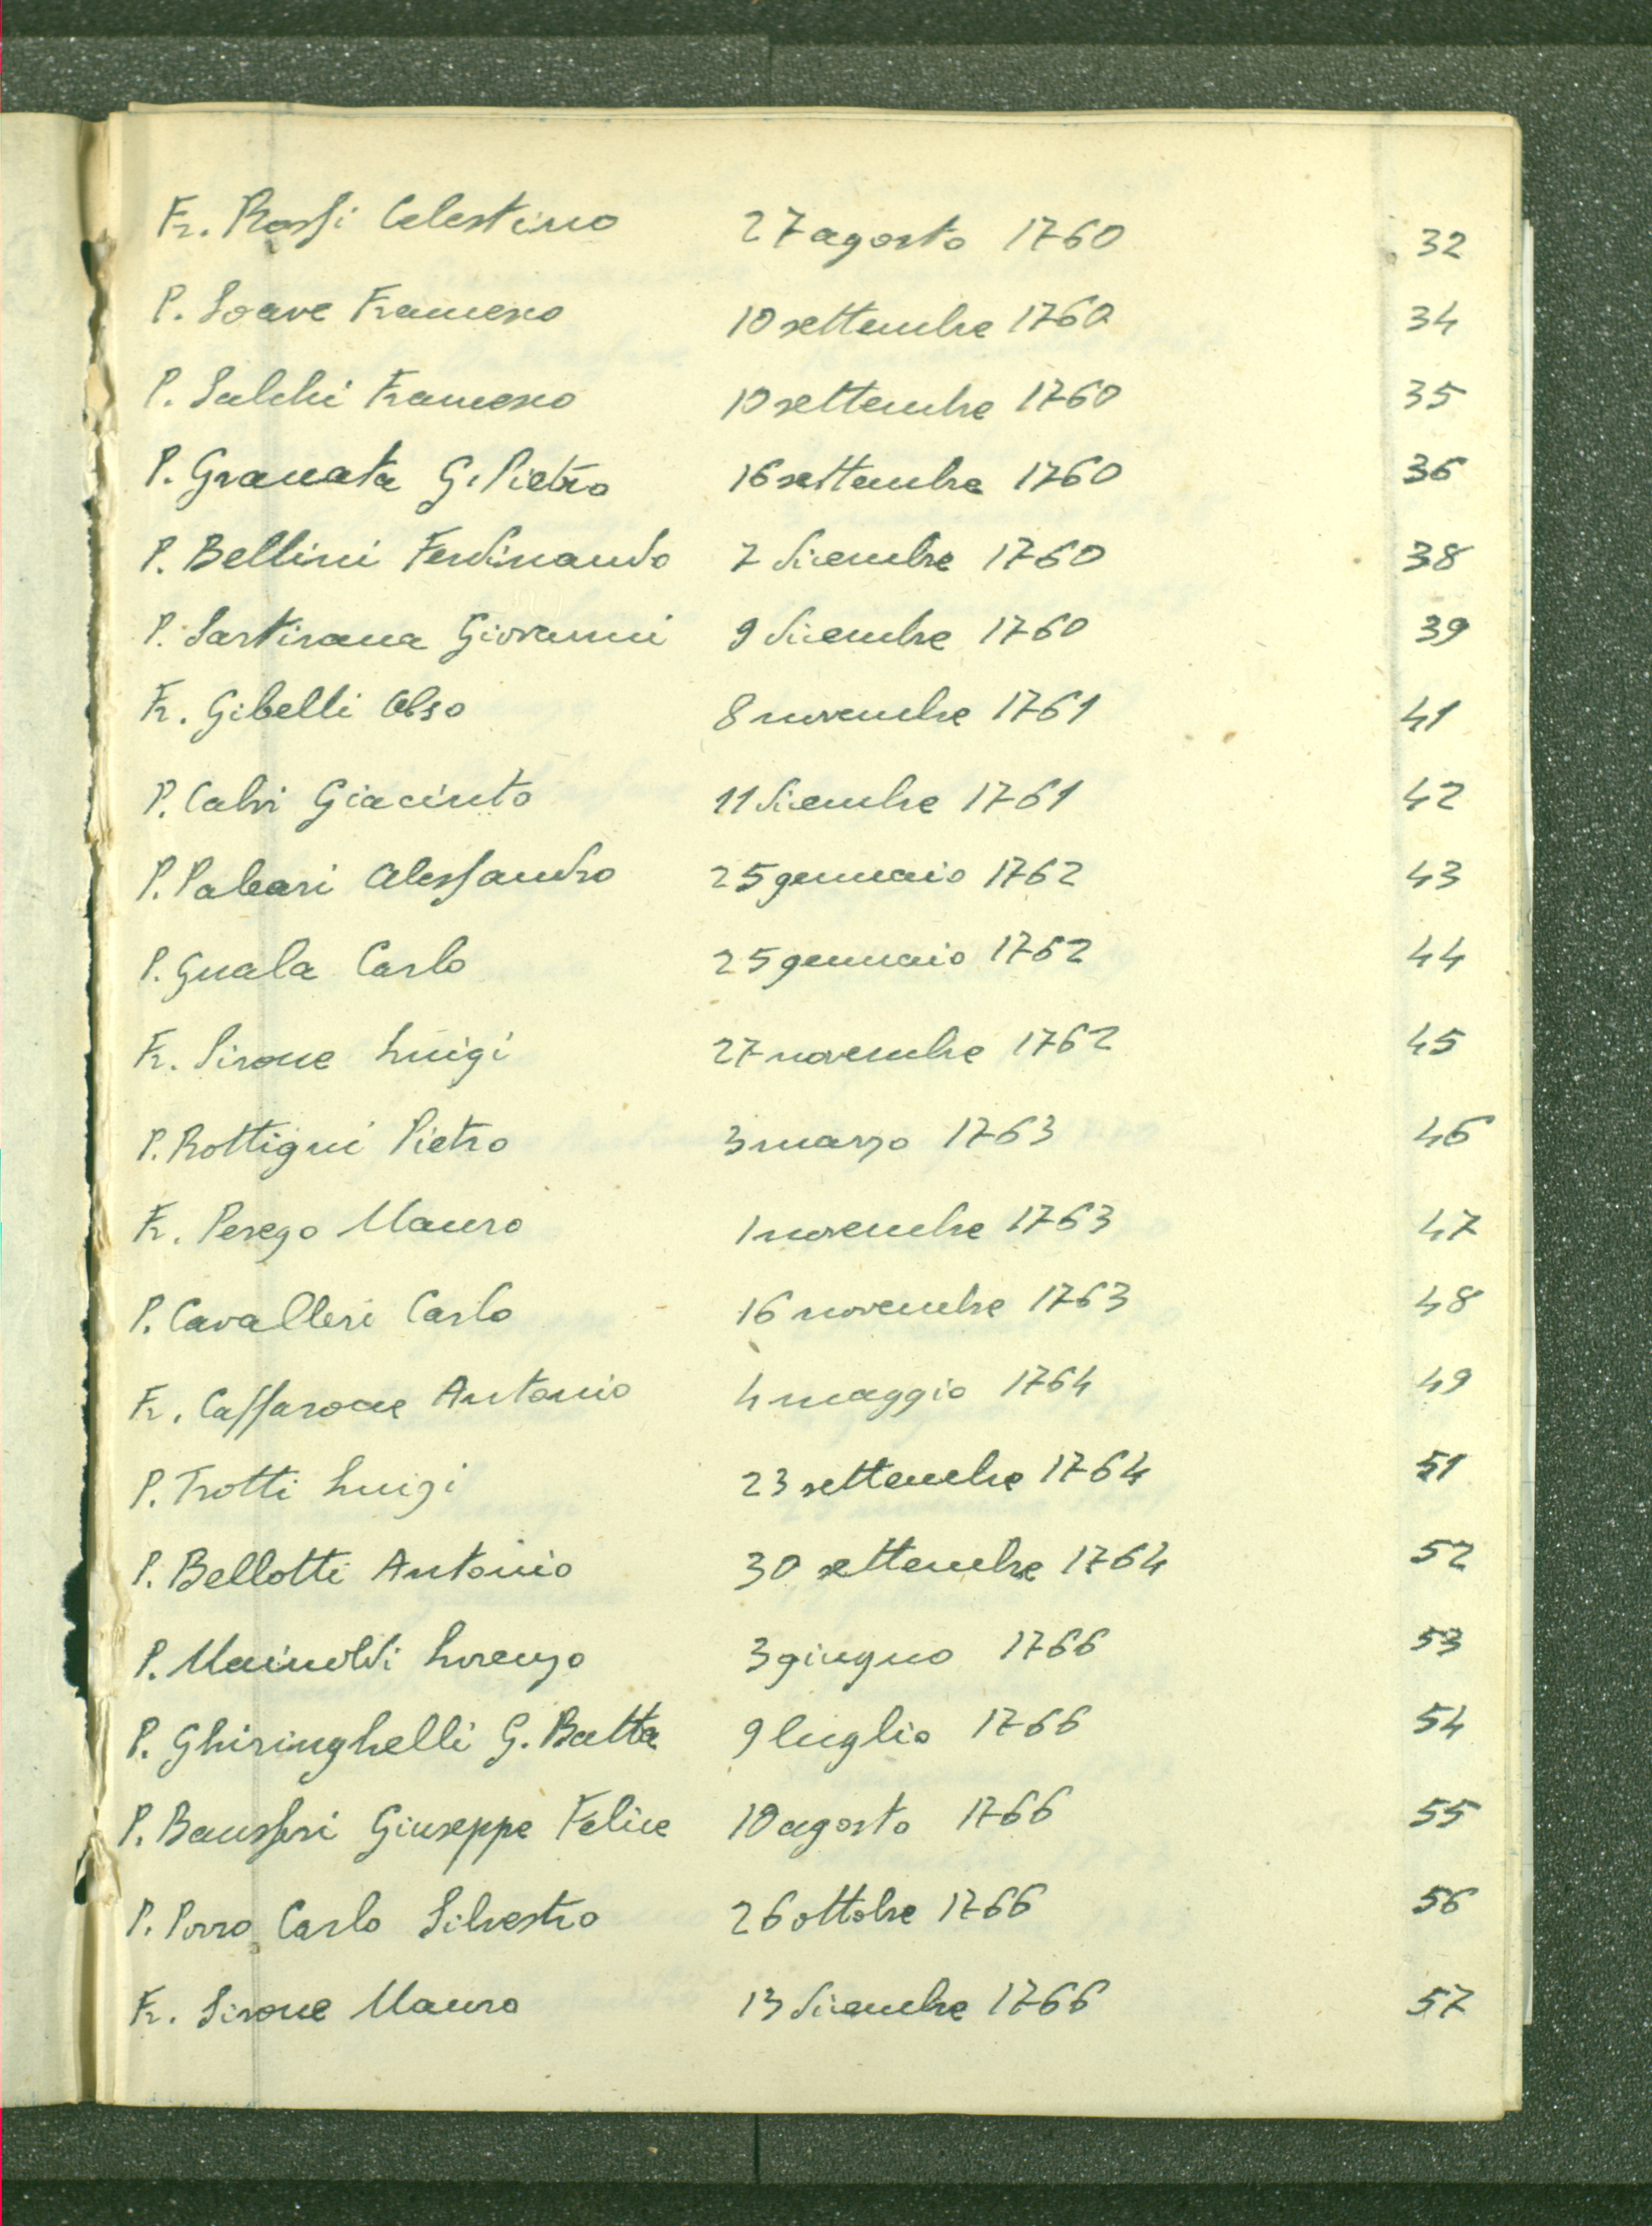 Fr. Rossi Celestino 27 agosto 1760 32
P. Soave Francesco 10 settembre 1760 34
P. Salchi Francesco 10 settembre 1760 35
P. Granata G. Pietro 16 settembre 1760 36
P. Bellini Ferdinando 7 dicembre 1760 38
P. Sartirana Giovanni 9 dicembre 1760 39
Fr. Gibelli Celso 8 novembre 1761 41
P. Calvi Giacinto 11 dicembre 1761 42
P. Paleari Alessandro 25 gennaio 1762 43
P. Guala Carlo 25 gennaio 1762 44
Fr. Sirone Luigi 27 novembre 1762 45
P. Rottigni Pietro 3 marzo 1763 46
Fr. Perego Mauro 1 novembre 1763 47
P. Cavalleri Carlo 16 novembre 1763 48
Fr. Caffarone Antonio 4 maggio 1764 49
P. Trotti Luigi 23 settembre 1764 51
P. Bellotti Antonio 30 settembre 1764 52
P. Mainoldi Lorenzo 3 giugno 1766 53
P. Ghiringhelli G. Batta 9 luglio 1766 54
P. Giuseppe Felice 10 agosto 1766 55
P. Porro Carlo Silvestro 26 ottobre 1766 56
Fr. Sirone Mauro 13 dicembre 1766 57